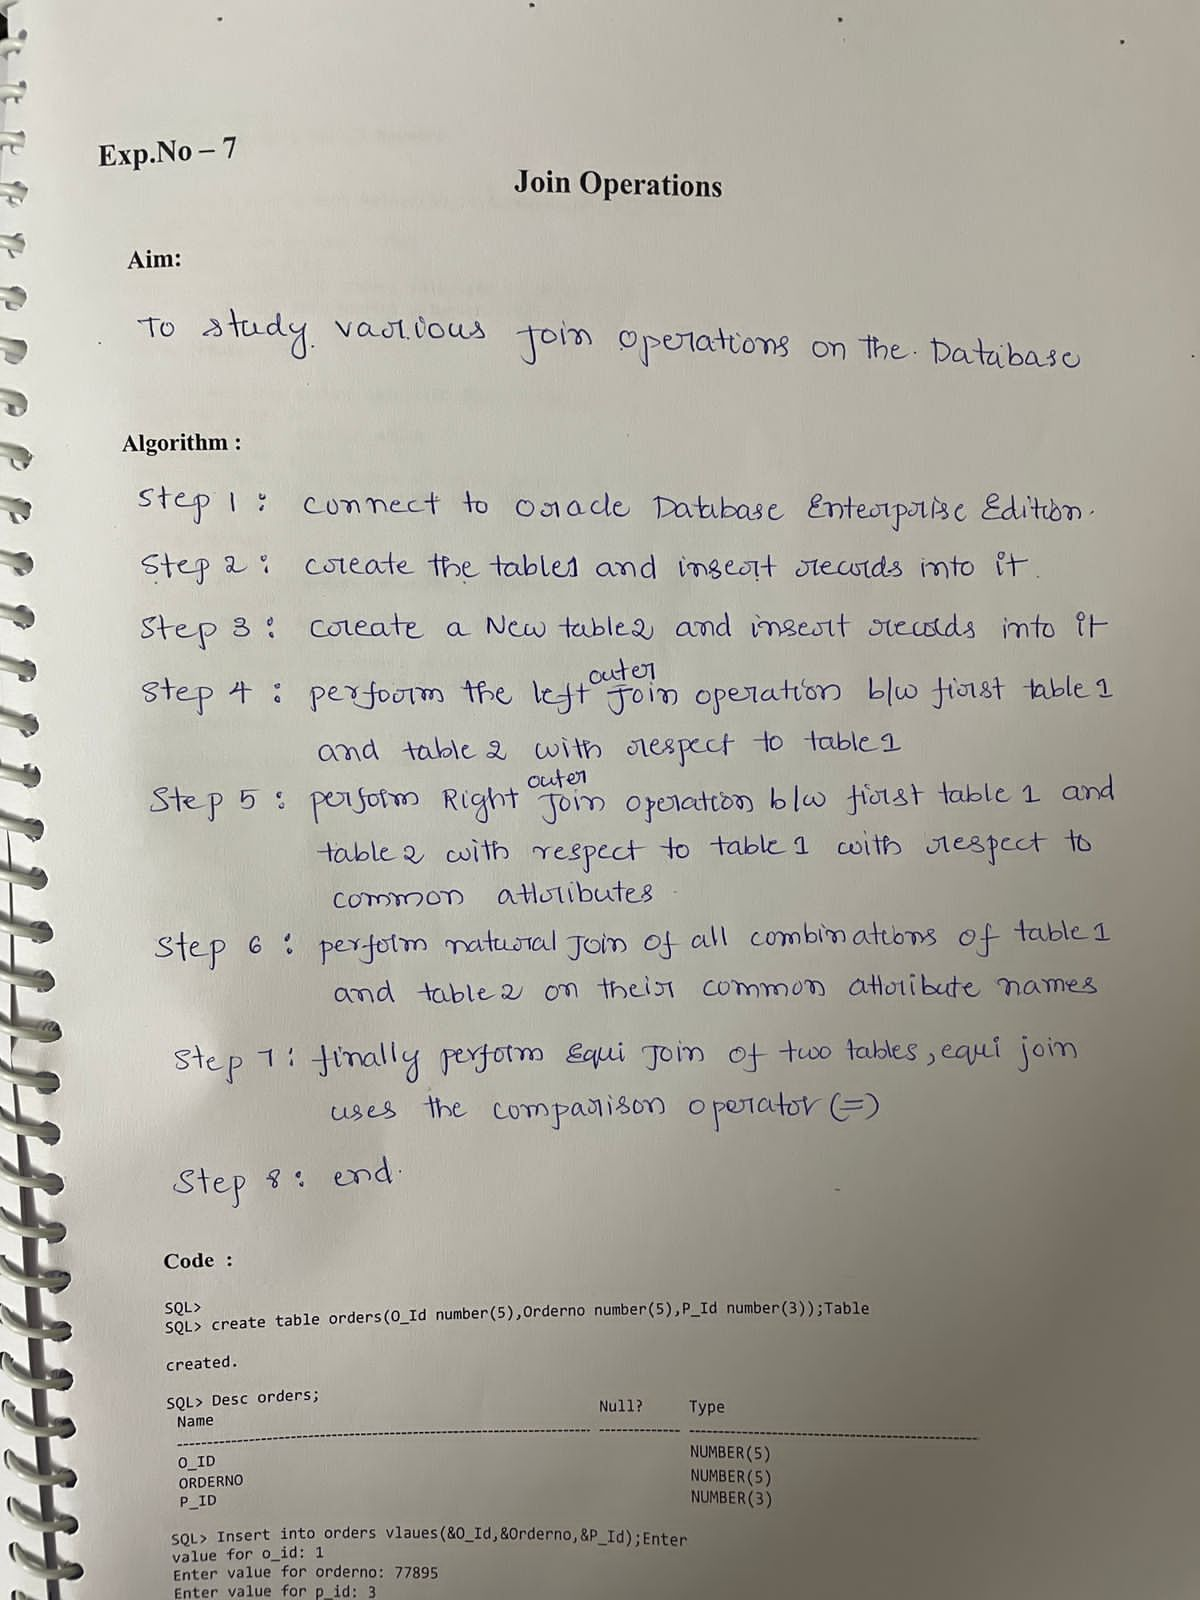 Exp.No – 7
Join Operations
Aim:
To study various Join operations on the Database
Algorithm :
Step 1 : connect to Oracle Database Enterprise Edition.
Step 2 : create the table1 and insert records into it.
Step 3 : create a New table2 and insert records into it
Step 4 : perform the left outer Join operation b/w first table 1
and table 2 with respect to table 1
Step 5 : perform Right outer Join operation b/w first table 1 and
table 2 with respect to table 1 with respect to
common attributes.
Step 6 : perform natural Join of all combinations of table 1
and table 2 on their common attribute names
Step 7 : finally perform Equi Join of two tables, equi join
uses the comparison operator (=)
Step 8 : end.
Code :
SQL>
SQL> create table orders(O_Id number(5),Orderno number(5),P_Id number(3));Table
created.
SQL> Desc orders;
Name Null? Type
O_ID NUMBER(5)
ORDERNO NUMBER(5)
P_ID NUMBER(3)
SQL> Insert into orders vlaues(&O_Id,&Orderno,&P_Id);Enter
value for o_id: 1
Enter value for orderno: 77895
Enter value for p_id: 3